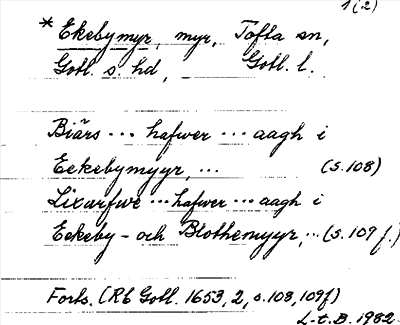 1(2)
* Ekebymyr, myr, Tofta sn,
Gotl. s. hd, Gotl. l.
Biärs ... hafwer ... aagh i
Eekebymyyr, ... (s. 108)
Lixarfwe ... hafwer ... aagh i
Eekeby- och Blothemyyr, ... (s. 109 f.)
Forts. (Rb Gotl. 1653, 2, s. 108, 109f)
L-t. B. 1982.